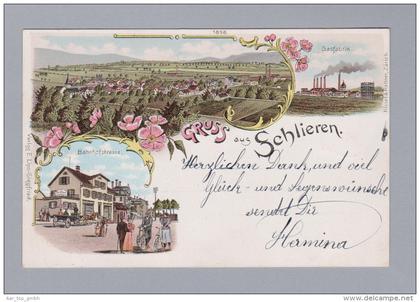 1898
Gasfabrik
GRUSS aus Schlieren.
Bahnhofstrasse
Herzlichen Dank, und viel
Glück- und Segenswünsche
sendet Dir
Hermina
kar_top_gmbh